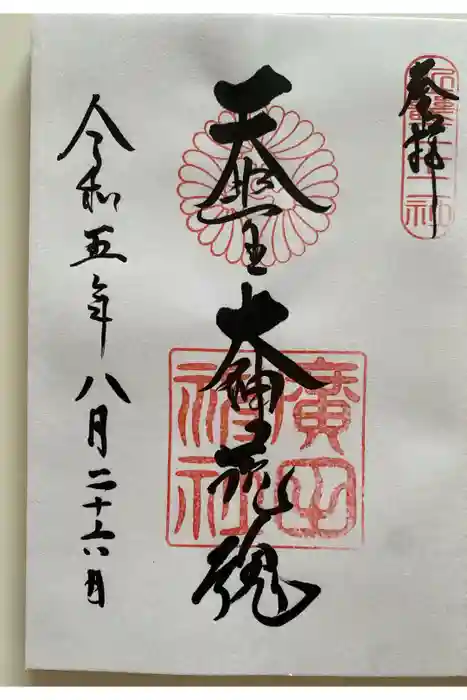 奉拝
天照皇大神荒魂
廣田
神社
令和五年八月二十六日